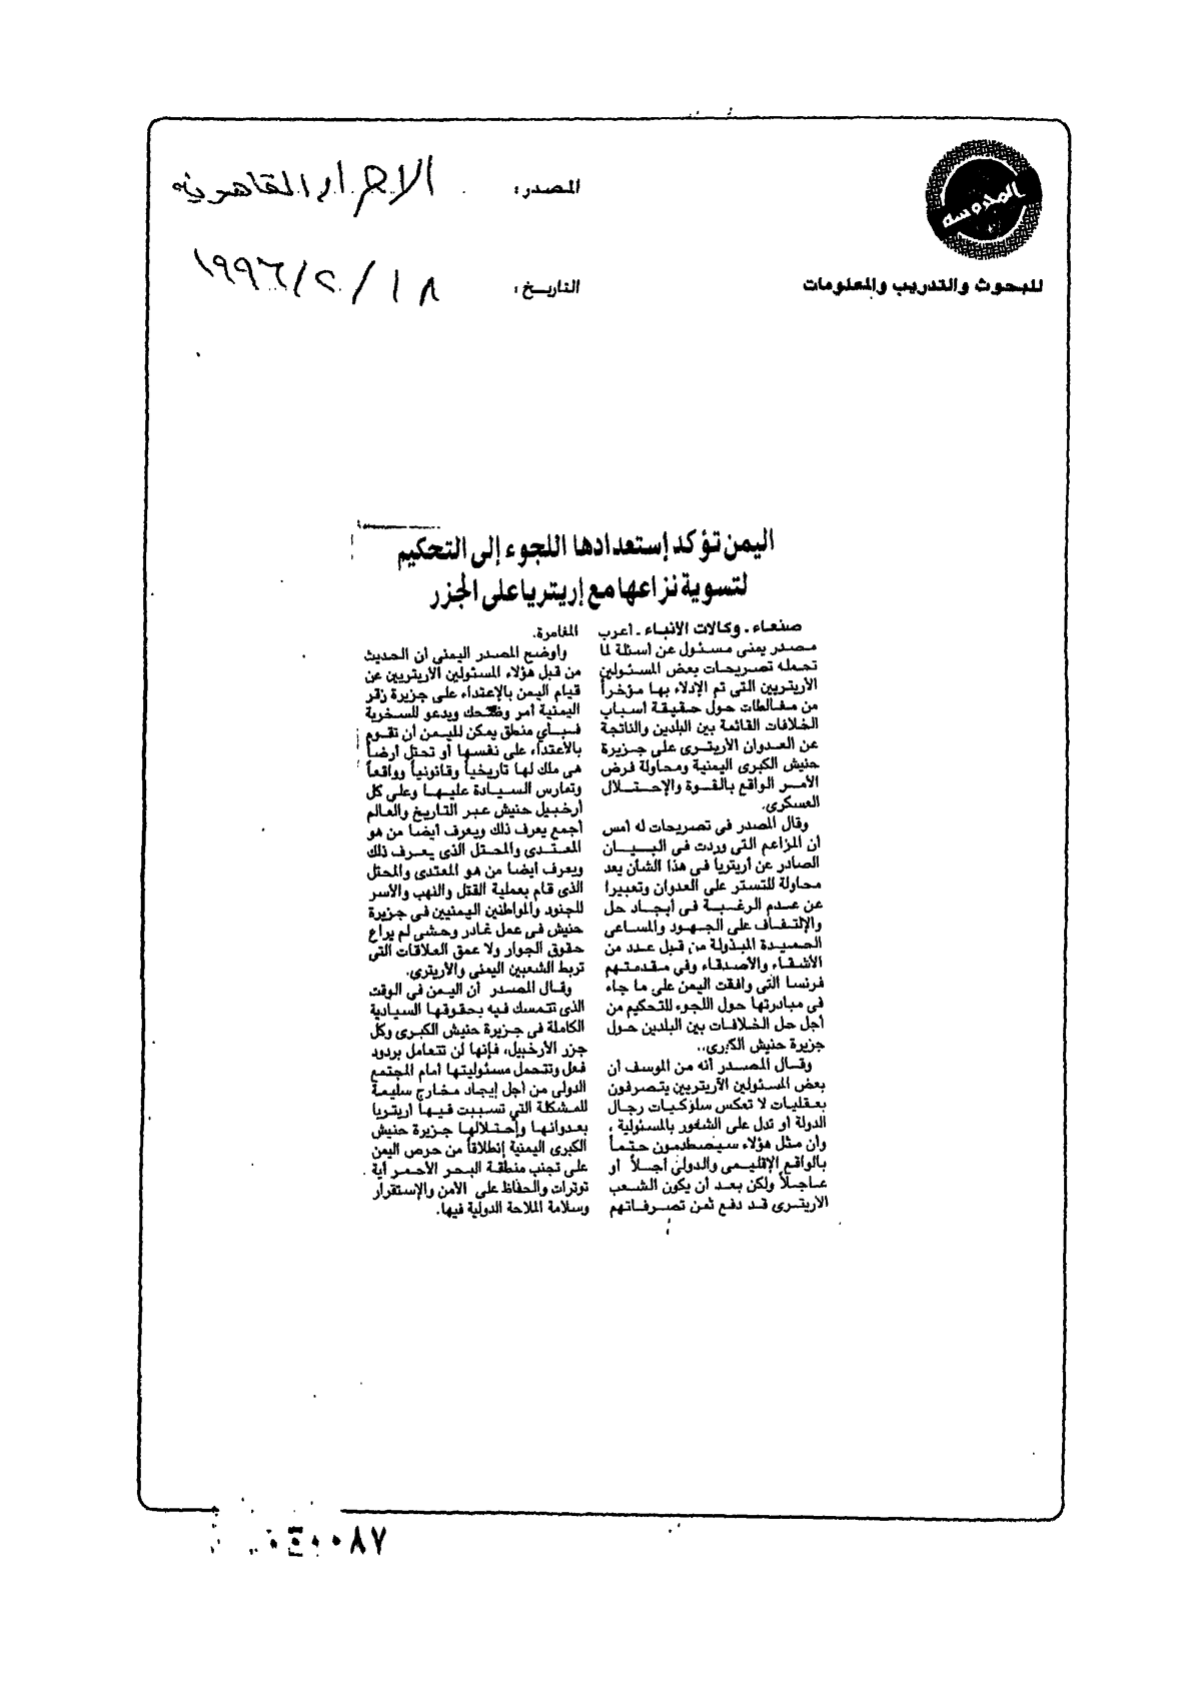 المحروسة
للبحوث والتدريب والمعلومات
المصدر: الاحرار القاهرية
التاريخ: ١٩٩٦/٢/١٨
اليمن تؤكد إستعدادها اللجوء إلى التحكيم
لتسوية نزاعها مع إريتريا على الجزر
صنعاء ـ وكالات الأنباء ـ أعرب
مصدر يمنى مسئول عن أسئلة لما
تحمله تصريحات بعض المسئولين
الأريتريين التى تم الإدلاء بها مؤخراً
من مغالطات حول حقيقة اسباب
الخلافات القائمة بين البلدين والناتجة
عن العدوان الأريترى على جزيرة
حنيش الكبرى اليمنية ومحاولة فرض
الأمر الواقع بالقوة والإحتلال
العسكرى.
وقال المصدر فى تصريحات له أمس
أن المزاعم التى وردت فى البيان
الصادر عن أريتريا فى هذا الشأن يعد
محاولة للتستر على العدوان وتعبيرا
عن عدم الرغبة فى أيجاد حل
والإلتفاف على الجهود والمساعى
الحميدة المبذولة من قبل عدد من
الأشقاء والأصدقاء وفى مقدمتهم
فرنسا التى وافقت اليمن على ما جاء
فى مبادرتها حول اللجوء للتحكيم من
أجل حل الخلافات بين البلدين حول
جزيرة حنيش الكبرى..
وقال المصدر أنه من الموسف أن
بعض المسئولين الآريتريين يتصرفون
بعقليات لا تعكس سلوكيات رجال
الدولة أو تدل على الشعور بالمسئولية ،
وان مثل هؤلاء سيصطدمون حتماً
بالواقع الإقليمى والدولى أجلاً أو
عاجلاً ولكن بعد أن يكون الشعب
الاريترى قد دفع ثمن تصرفاتهم
المغامرة.
وأوضح المصدر اليمنى أن الحديث
من قبل هؤلاء المسئولين الأريتريين عن
قيام اليمن بالإعتداء على جزيرة زقر
اليمنية أمر وضحك ويدعو للسخرية
فبأي منطق يمكن لليمن أن تقوم
بالأعتداء على نفسها أو تحتل أرضاً
هى ملك لها تاريخياً وقانونياً وواقعاً
وتمارس السيادة عليها وعلى كل
أرخبيل حنيش عبر التاريخ والعالم
أجمع يعرف ذلك ويعرف أيضا من هو
المعتدى والمحتل الذى يعرف ذلك
ويعرف أيضا من هو المعتدى والمحتل
الذى قام بعملية القتل والنهب والأسر
للجنود والمواطنين اليمنيين فى جزيرة
حنيش فى عمل غادر وحشى لم يراع
حقوق الجوار ولا عمق العلاقات التى
تربط الشعبين اليمنى والأريترى.
وقال المصدر أن اليمن فى الوقت
الذى تتمسك فيه بحقوقها السيادية
الكاملة فى جزيرة حنيش الكبرى وكل
جزر الأرخبيل، فإنها لن تتعامل بردود
فعل وتتحمل مسئوليتها أمام المجتمع
الدولى من أجل إيجاد مخارج سليمة
للمشكلة التي تسببت فيها أريتريا
بعدوانها وإحتلالها جزيرة حنيش
الكبرى اليمنية إنطلاقاً من حرص اليمن
على تجنب منطقة البحر الأحمر أية
توترات والحفاظ على الأمن والإستقرار
وسلامة الملاحة الدولية فيها.